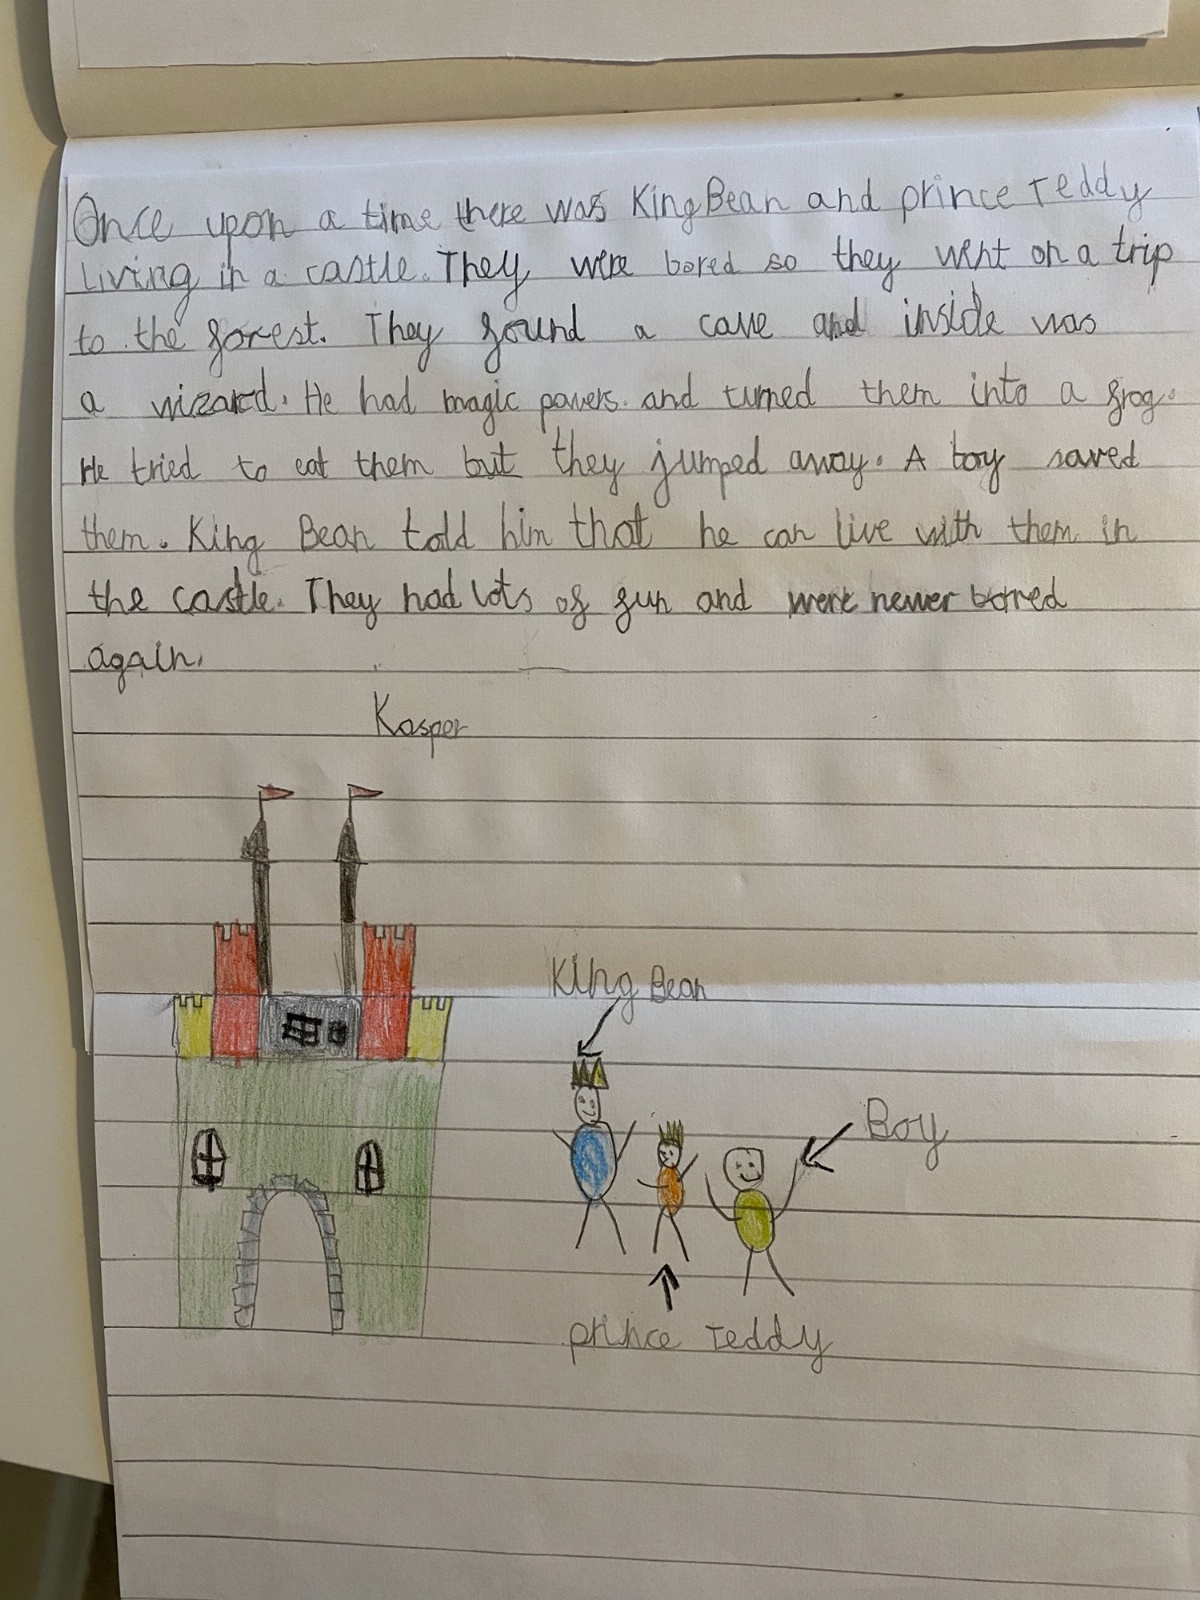 Once upon a time there was King Bean and prince Teddy
Living in a castle. They were bored so they went on a trip
to the forest. They found a cave and inside was
a wizard. He had magic powers and turned them into a frog.
He tried to eat them but they jumped away. A boy saved
them. King Bean told him that he can live with them in
the castle. They had lots of fun and were newer borred
again.
Kasper
King Bean
Boy
prince Teddy